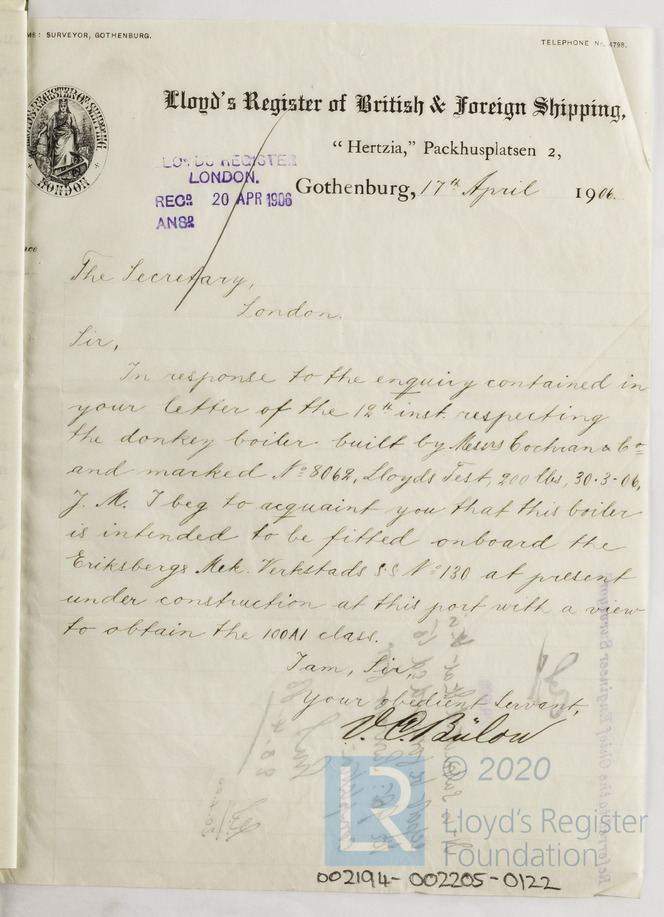 SURVEYOR, GOTHENBURG.
TELEPHONE No. 4798.
Lloyd's Register of British & Foreign Shipping,
"Hertzia," Packhusplatsen 2,
LLOYDS REGISTER
LONDON.
Gothenburg, 17th April 1906.
RECD 20 APR 1906
ANSD
LONDON
The Secretary,
London.
Sir,
In response to the enquiry contained in
your letter of the 12th inst. respecting
the donkey boiler built by Messrs Cochran & Co
and marked No 8062, Lloyds Test, 200 lbs, 30.3.06,
J. M. I beg to acquaint you that this boiler
is intended to be fitted onboard the
Eriksbergs Mek. Verkstads SS No 130 at present
under construction at this port with a view
to obtain the 100A1 class.
I am, Sir,
Your obedient Servant,
V. C. Bülow
LR
© 2020
Lloyd's Register
Foundation
002194-002205-0122